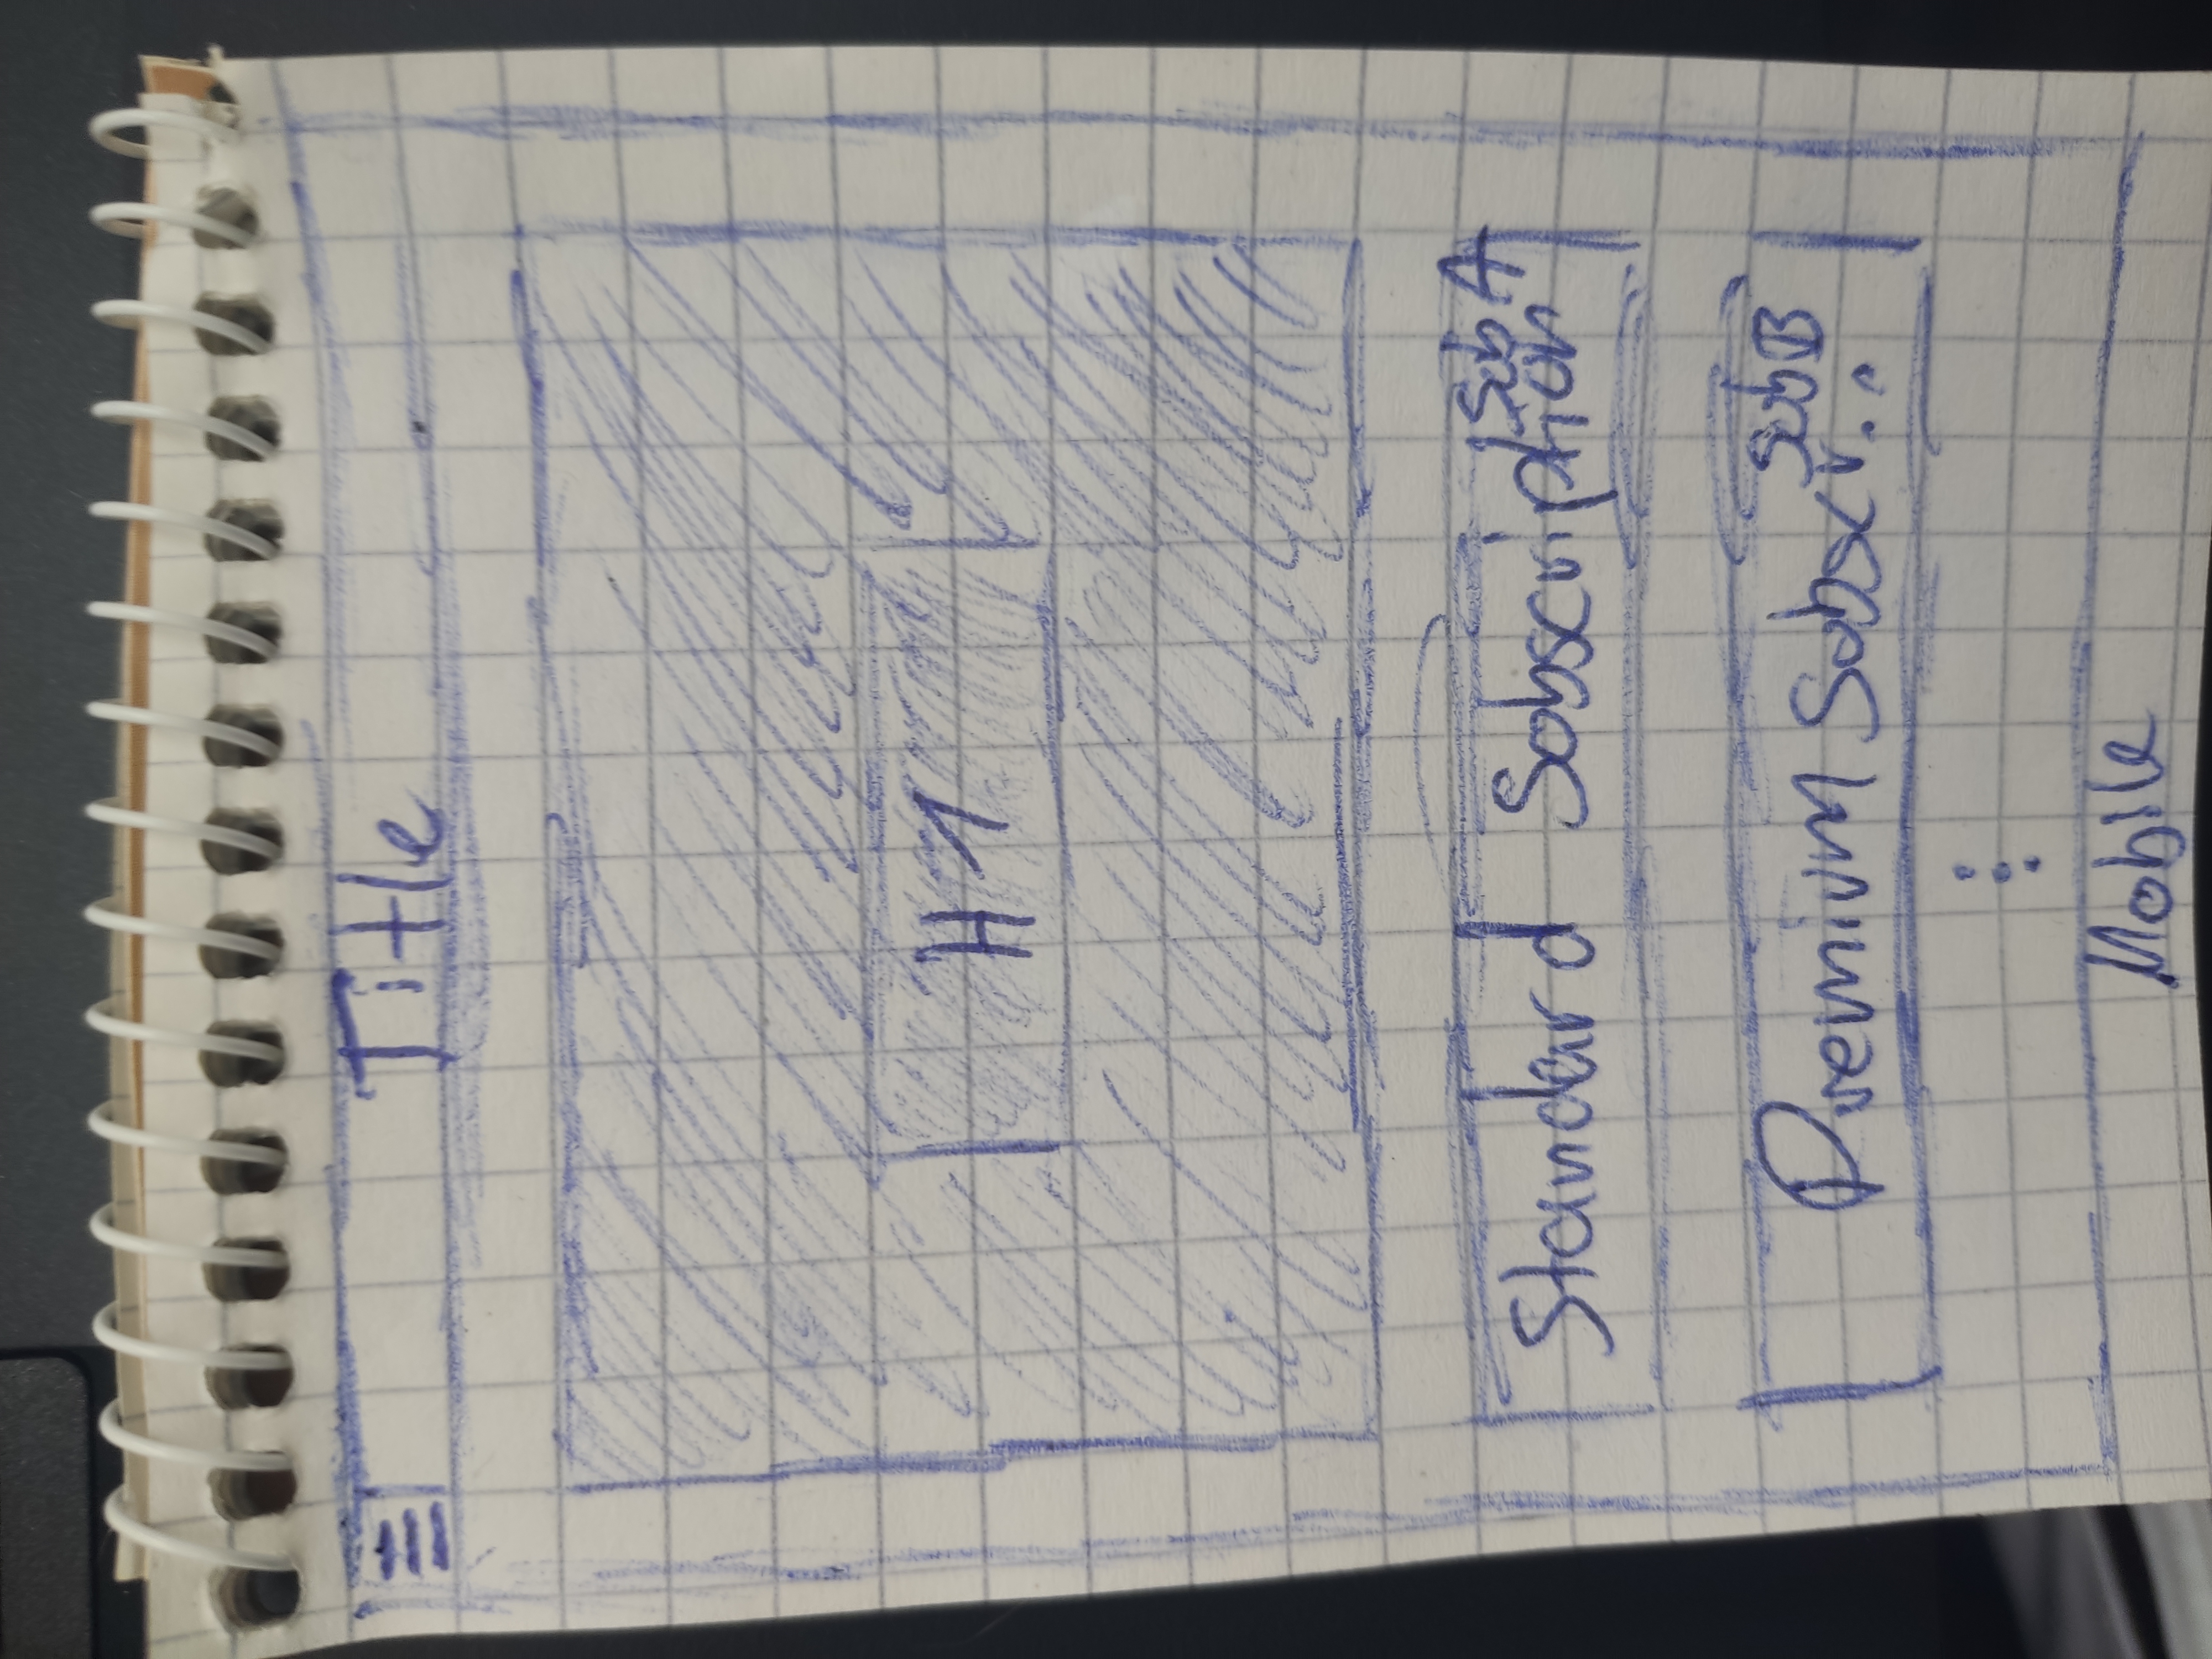 Title
H1
Sub A
Standard Subscription
Sub B
Premium Subscr...
Mobile